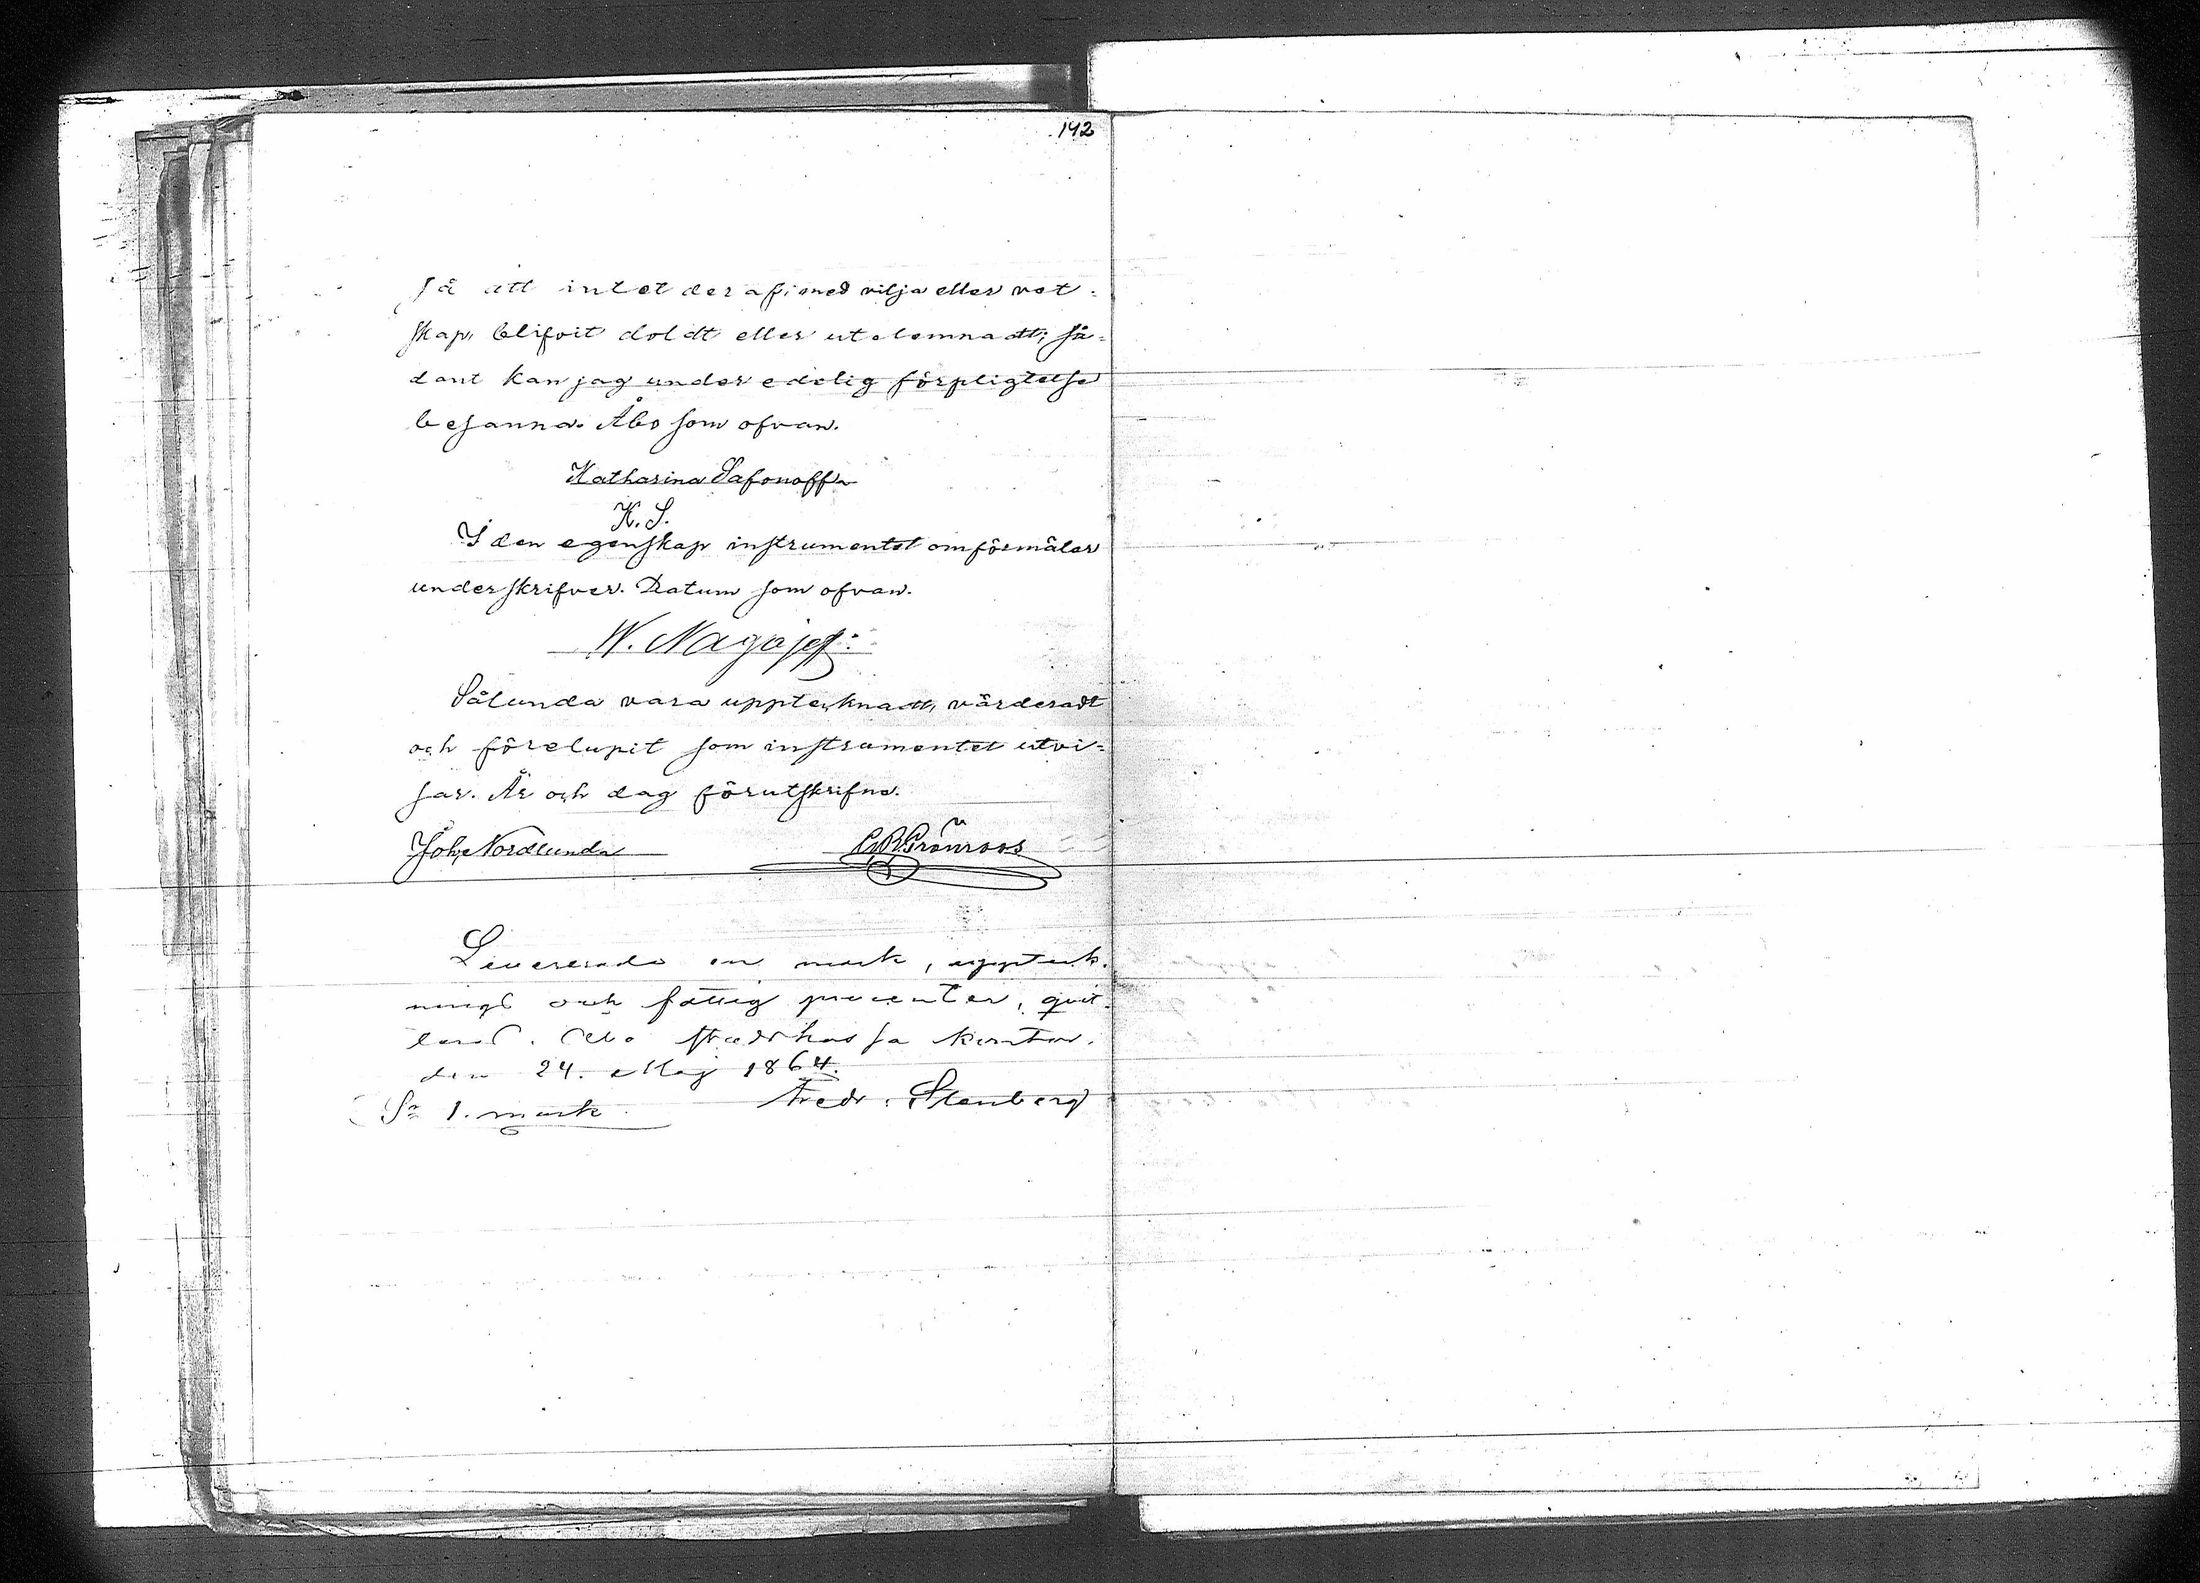 142
så att intet deraf, med vilja eller vet-
skap, blifvit doldt eller utelemnadt; så-
dant kan jag under edelig förpligtelse
besanna. Åbo som ofvan.
Katharina Safonoff
K. S.
I den egenskap instrumentet omförmäler
underskrifver. Datum som ofvan.
W. Nagajeff:
Sålunda vara uppteknadt, värderadt
och förelupit som instrumentet utvi-
sar. År och dag förutskrifne.
Joh. Nordlund G B Grönroos
Levererade en mark, upptek-
nings och fattig procenter, qvit-
teras. Åbo stadskassa kontor.
den 24. Maj 1864.
Sa 1. mark Fredr. Stenberg